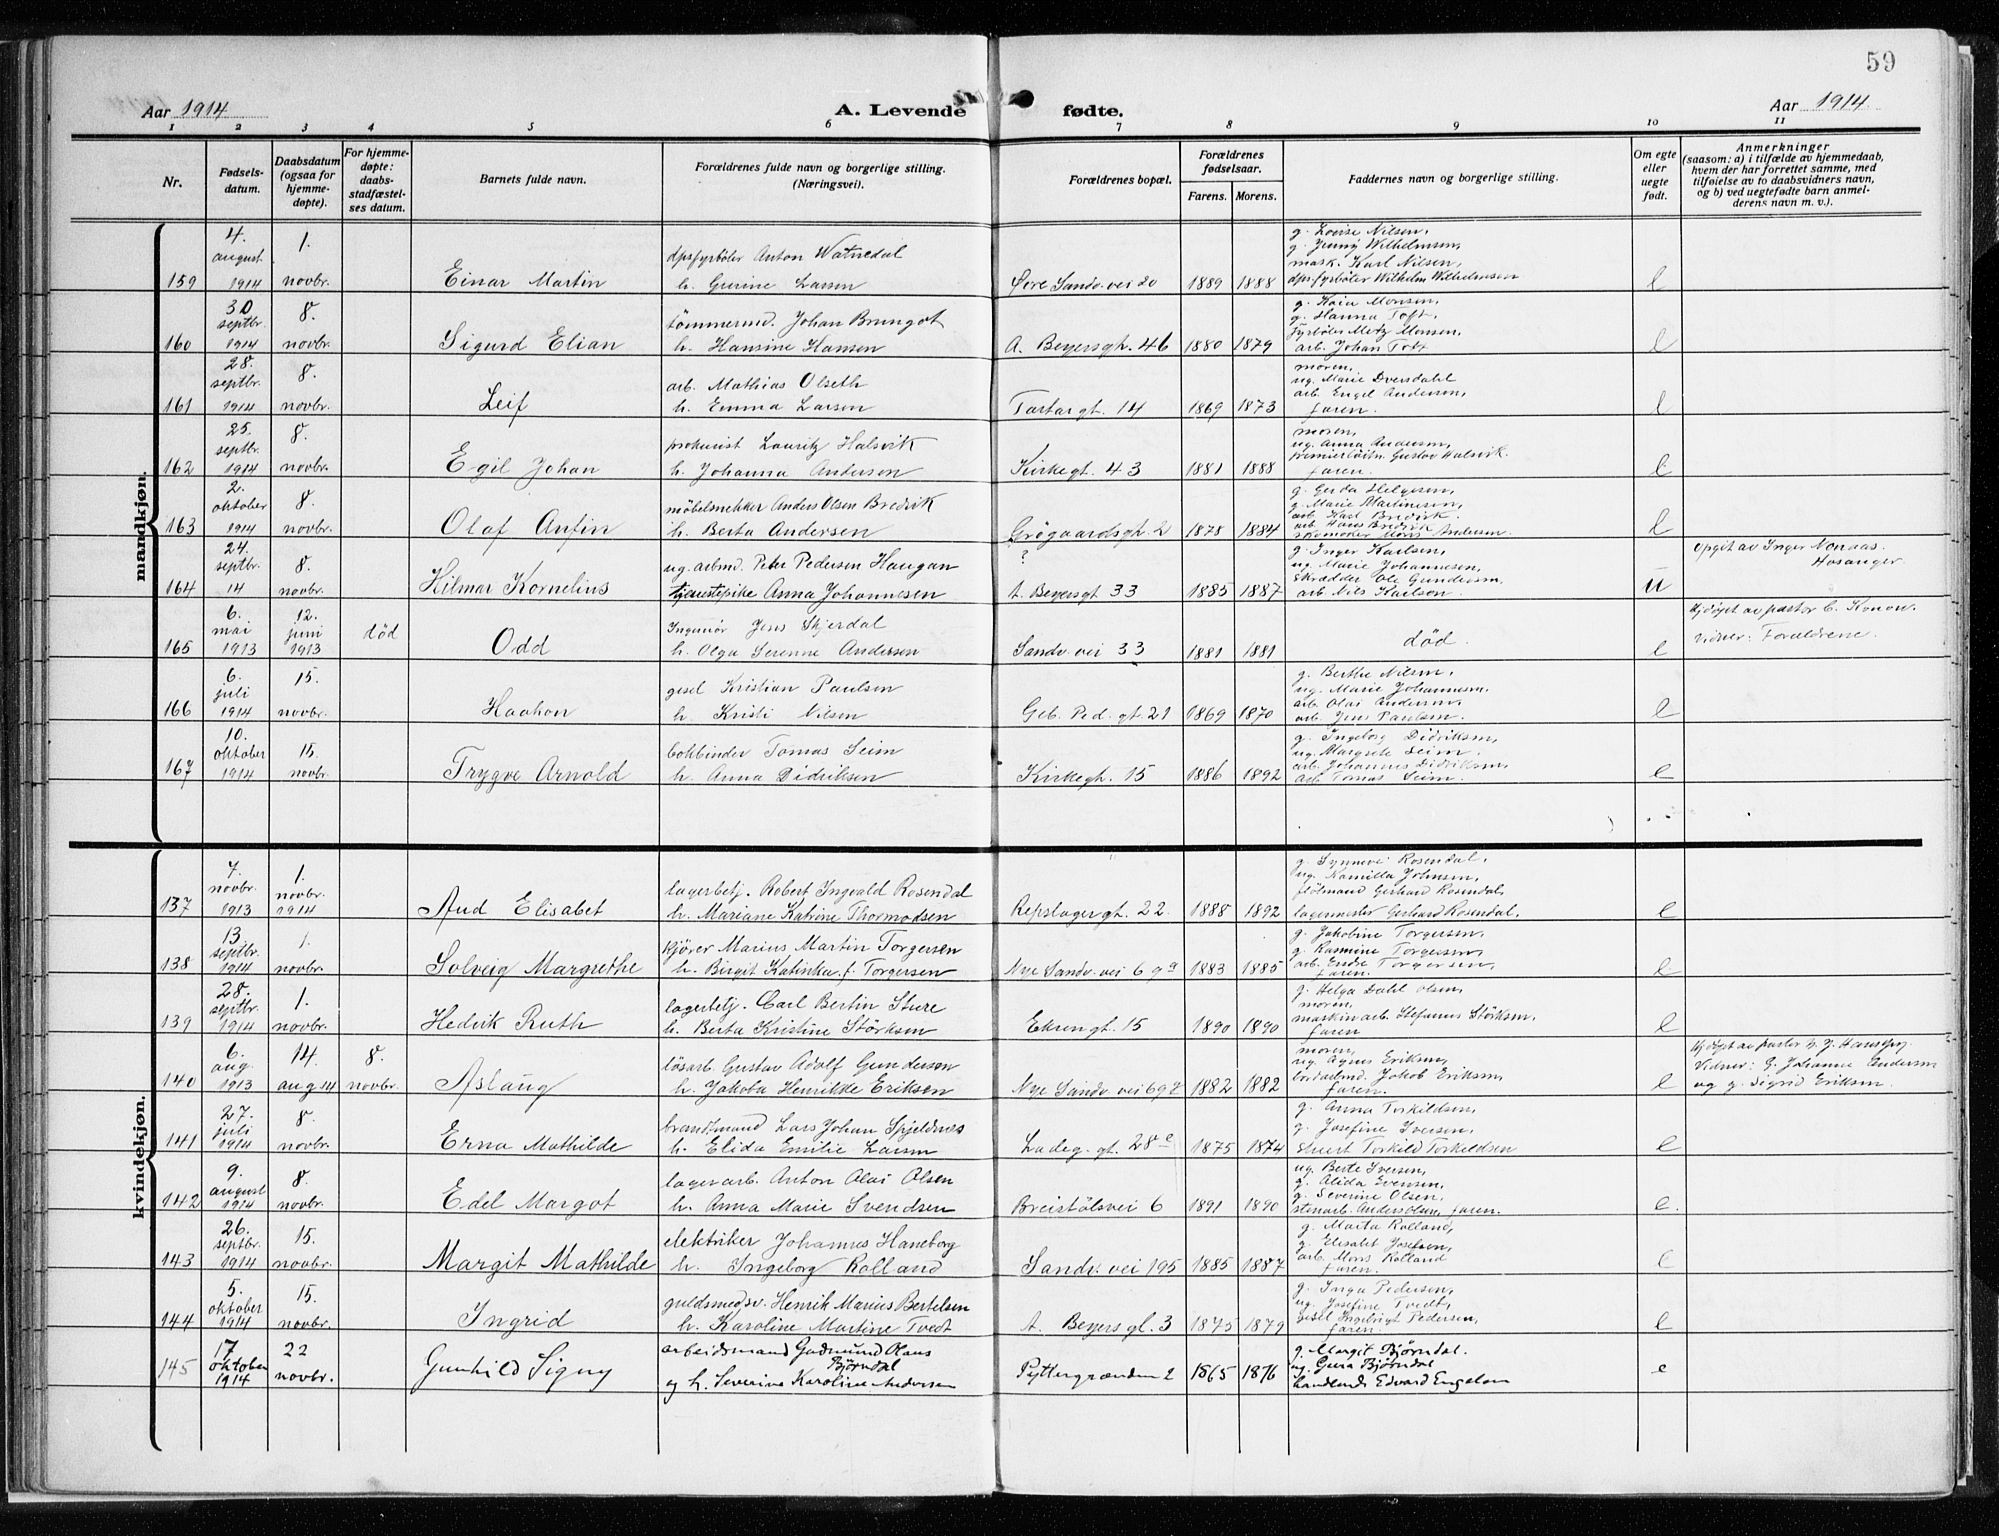 59
Aar 1914
A. Levende fødte.
Aar 1914
1 2 3 4 5 6 7 8 9 10 11
Nr.
Fødselsdatum.
Daabsdatum (ogsaa for hjemmedøpte).
For hjemmedøpte: daabsstadfæstelses datum.
Barnets fulde navn.
Forældrenes fulde navn og borgerlige stilling. (Næringsvei).
Forældrenes bopæl.
Forældrenes fødselsaar.
Farens. Morens.
Faddernes navn og borgerlige stilling.
Om egte eller uegte født.
Anmerkninger (saasom: a) i tilfælde av hjemmedaab, hvem der har forrettet samme, med tilføielse av to daabsvidners navn, og b) ved uegtefødte barn anmelderens navn m. v.).
mandkjøn.
159 4. august 1914 1. novbr. Einar Martin dpsfyrbøter Anton Watnedal h. Gurine Larsen Øvre Sandv. vei 20 1889 1888 g. Lovise Nilsen, g. Jenny Wilhelmsen, mask. Karl Nilsen, dpsfyrbøter Wilhelm Wilhelmsen e
160 30 septbr. 1914 8. novbr. Sigurd Elian tømmermd. Johan Brungot h. Hansine Hansen A. Beyersgt. 46 1880 1879 g. Kaia Monsen, g. Hanna Toft, fyrbøter Metz Monsen, arb. Johan Toft e
161 28. septbr. 1914 8. novbr. Leif arb. Mathias Olseth h. Emma Larsen Tartargt. 14 1869 1873 moren, ug. Marie Dversdahl arb. Engel Andersen, faren. e
162 25. septbr. 1914 8. novbr. Egil Johan prokurist Lauritz Halsvik h. Johanna Andersen Kirkegt. 43 1881 1888 moren, ug. Anna Andersen, premierløitn. Gustav Halsvik. faren. e
163 2. oktober 1914 8. novbr. Olaf Anfin möbelsnekker Anders Olsen Bredvik h. Berta Andersen Grøgaardsgt. 2 1878 1884 g. Gerda Helgesen, g. Marie Martinesen, arb. Karl Bredvik, arb. Hans Bredvik skomaker Andersen. e
164 24. septbr. 14 8. novbr. Hilmar Kornelius ug. arbmd. Peter Pedersen Haugan tjenestepike Anna Johannesen ? A. Beyersgt 33 1885 1887 g. Inger Karlsen, ug. Marie Johannesen, skrædder Ole Gundersen, arb. Nils Karlsen. u Opgit av Inger Hosanger.
165 6. mai 1913 12. juni 1913 død Odd Ingeniør Jens Skjerdal h. Olga Serenne Andersen Sandv. vei 33 1881 1881 død. e Hjdøpt av pastor C. Konow. Vidner: Forældrene.
166 6. juli 1914 15. novbr. Haakon gesel Kristian Paulsen h. Kristi Nilsen Geb. Ped. gt. 21 1869 1870 g. Berthe Nilsen, ug. Marie Johannesen, arb. Olai Andersen, arb. Jens Paulsen. e
167 10. oktober 1914 15. novbr. Trygve Arnold bokbinder Tomas Seim h. Anna Didriksen Kirkegt. 15 1886 1892 g. Ingeborg Didriksen, ug. Margrete Seim, arb. Johannes Didriksen arb. Tomas Seim. e
kvindekjøn.
137 7. novbr. 1913 1. novbr. 1914 Aud Elisabet lagerbetj. Robert Ingvald Rosendal h. Mariane Katrine Thormodsen Repslagergt. 22. 1888 1892 g. Synnøvi Rosendal, ug. Kamilla Johnsen, flötmand Gerhard Rosendal, lagermester Gerhard Rosendal. e
138 13. septbr. 1914 1. novbr. Solveig Margrethe kjører Marius Martin Torgersen h. Birgit Katinka f. Torgersen Nye Sandv. vei 69a 1883 1885 g. Jakobine Torgersen, g. Rasmine Torgersen, arb. Endre Torgersen, faren. e
139 28. septbr. 1914 1. novbr. Hedvik Ruth lagerbetj. Carl Bertin Sture h. Berta Kristine Störksen Ekrengt. 15 1890 1890 g. Helga Dahl Olsen, moren, maskin arb. Stefanus Störksen, faren e
140 6. aug. 1913 14. aug 14 8. novbr. Aslaug løsarb. Gustav Adolf Gundersen h. Jakoba Henrikke Eriksen Nye Sandv. vei 69 1882 1882 moren, ug. Agnes Eriksen, Jakob Eriksen, faren. e Hjdøpt av pastor Vidner: G. Johanne Andersen og g. Sigrid Eriksen.
141 27. juli 1914 8. novbr. Erna Mathilde brandtmand Lars Johan Spjeldnes h. Elida Emilie Larsen Ladeg. gt. 28e 1875 1874 g. Anna Torkildsen, g. Josefine Iversen, Stuert Torkild Torkildsen e
142 9. august 1914 8. novbr. Edel Margot lagerarb. Anton Olai Olsen h. Anna Marie Svendsen Breistølsvei 6 1891 1890 ug. Berte Iversen, g. Alida Evensen, g. Severine Olsen, stenarb. Anders Olsen, faren. e.
143 26. septbr. 1914 15. novbr. Margit Mathilde elektriker Johannes Haneborg h. Ingeborg Rolland Sandv. vei 195 1885 1887 g. Marta Rolland, g. Elisabet Josefsen, arb. Mons Rolland faren. e
144 5. oktober 1914 15. novbr. Ingrid guldsmedsv. Henrik Marius Bertelsen h. Karoline Martine Tvedt A. Beyers gt. 3 1875 1879 g. Inga Pedersen, ug. Josefine Tvedt, gesel Ingebrigt Pedersen, faren. e
145 17 oktober 1914 22 novbr. Gunhild Signy arbeidsmand Gudmund Olaus Bjørndal og h. Severine Karoline Andersen Pyttergrænden 2 1865 1876 g. Margit Bjørndal. ug. Gura Bjørndal Edvard Engelsen e